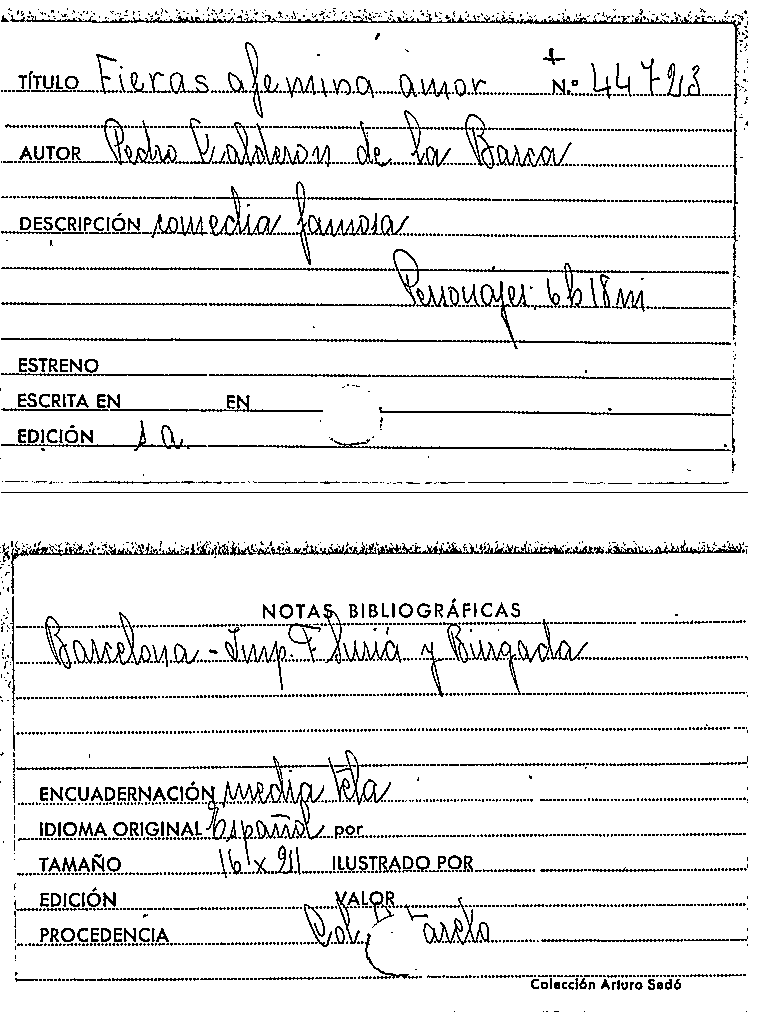 TÍTULO Fieras afemina amor + N.º 44723
AUTOR Pedro Calderon de la Barca
DESCRIPCIÓN comedia famosa
Personajes: 6 h 18 m
ESTRENO
ESCRITA EN EN
EDICIÓN s.a.
NOTAS BIBLIOGRÁFICAS
Barcelona - Imp. F Suriá y Burgada
ENCUADERNACIÓN media tela
IDIOMA ORIGINAL Español por
TAMAÑO 16 x 21 ILUSTRADO POR
EDICIÓN VALOR
PROCEDENCIA Col.
Colección Arturo Sedó